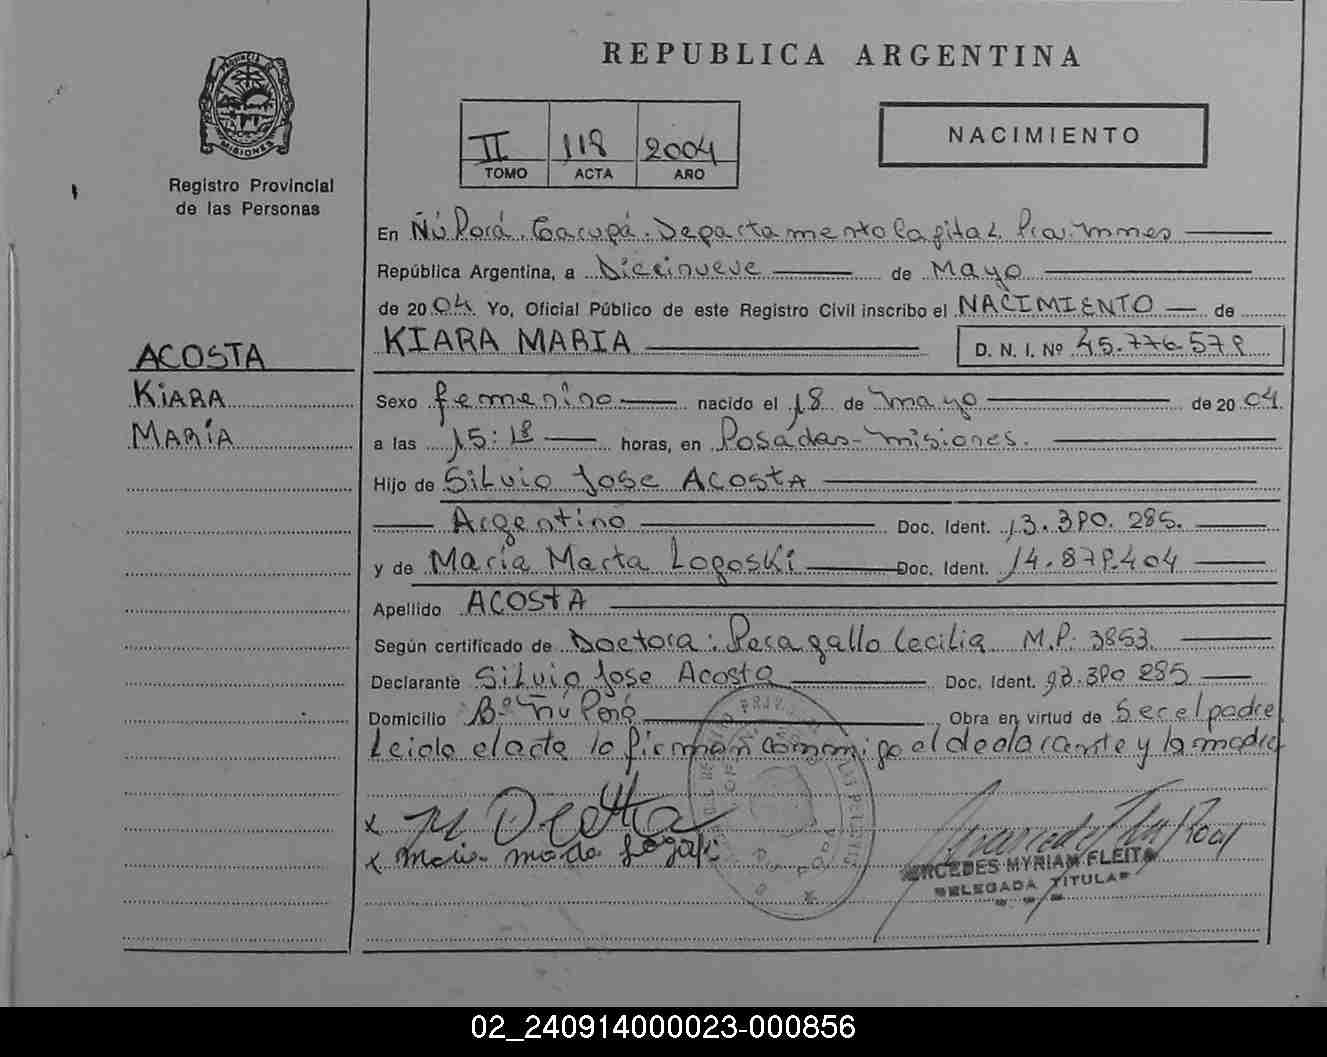 REPUBLICA ARGENTINA
PROVINCIA DE
MISIONES
Registro Provincial
de las Personas
II 118 2004
TOMO ACTA AÑO
NACIMIENTO
ACOSTA
KiARA
MARÍA
En Ñú Porá. Garupá. Departamento Capital. Prov. Mnes
República Argentina, a Diecinueve de Mayo
de 2004 Yo, Oficial Público de este Registro Civil inscribo el NACIMIENTO de
KIARA MARIA D. N. I. Nº 45.776.578
Sexo femenino nacido el 18 de mayo de 2004
a las 15:18 horas, en Posadas-misiones.
Hijo de Silvio Jose ACOSTA
Argentino Doc. Ident. 13.380.285.
y de Maria Marta Logoski Doc. Ident. 14.878.404
Apellido ACOSTA
Según certificado de Doctora: Pecagallo Cecilia M.P. 3853.
Declarante Silvio Jose Acosta Doc. Ident. 13.380 285
Domicilio Bº Ñú Porá Obra en virtud de Ser el padre
Leida el acta la firman conmigo el declarante y la madre
x
x
MERCEDES MYRIAM FLEITA
DELEGADA TITULAR
02_240914000023-000856